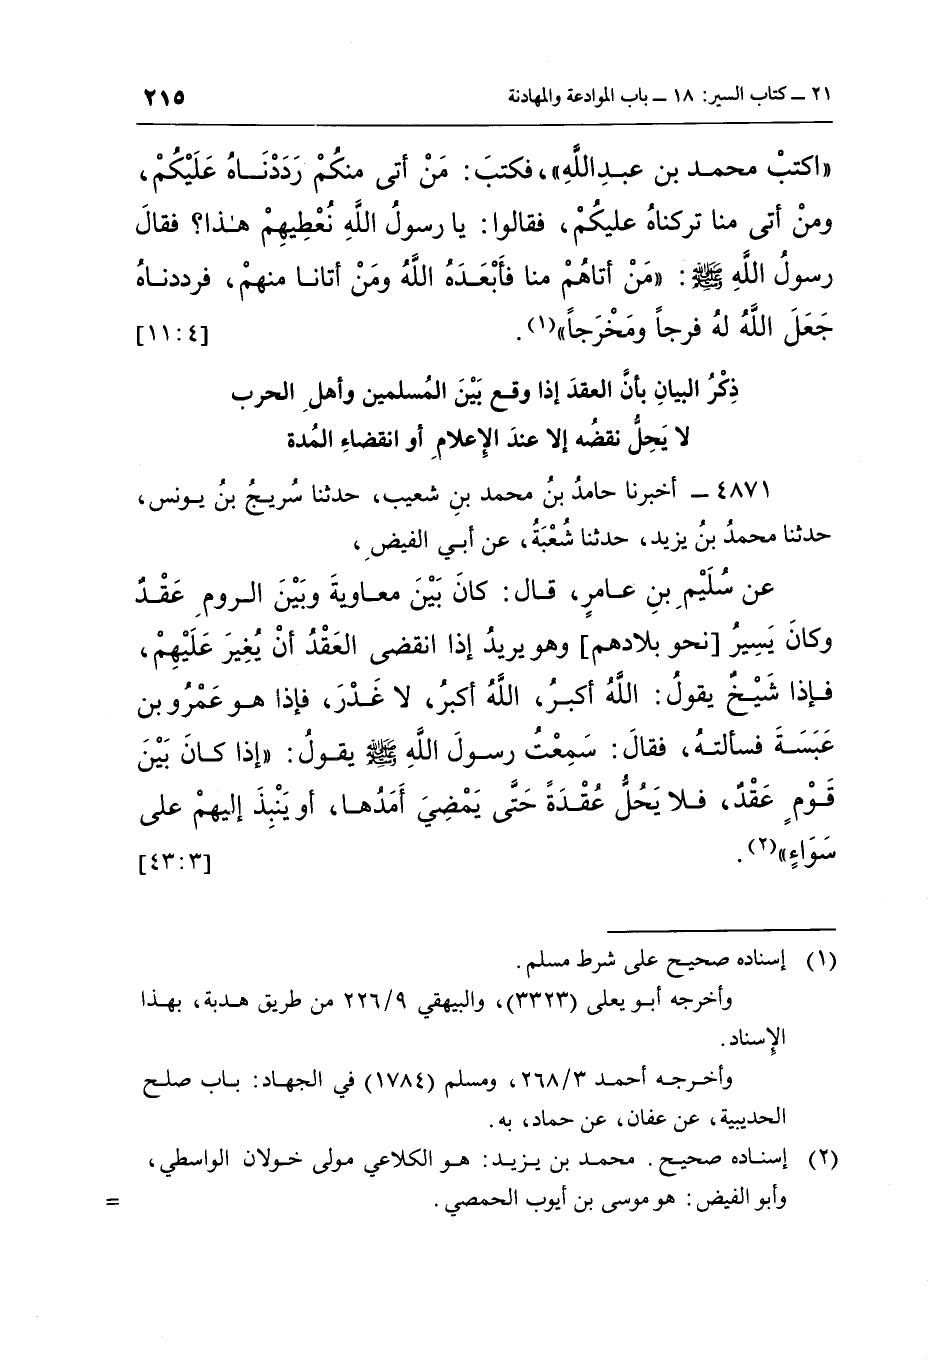 ٢١ ـ كتاب السير: ١٨ ـ باب الموادعة والمهادنة ٢١٥
«اكتبْ محمـد بن عبدِاللَّهِ»، فكتبَ: مَنْ أتى منكُمْ رَدَدْنَـاهُ عَلَيْكُمْ،
ومنْ أتى منا تركناهُ عليكُمْ، فقالوا: يا رسولُ اللَّهِ نُعْطِيهِمْ هـٰذا؟ فقالَ
رسولُ اللَّهِ ﷺ: «مَنْ أتاهُمْ منا فأَبْعَـدَهُ اللَّهُ ومَنْ أتانـا منهمْ، فرددنـاهُ
جَعَلَ اللَّهُ لهُ فرجاً ومَخْرَجاً»(١). [١١:٤]
ذِكْرُ البيانِ بأنَّ العقدَ إذا وقـع بَيْنَ المُسلمين وأهلِ الحرب
لا يَحِلُّ نقضُه إلا عندَ الإِعلامِ أو انقضاءِ المُدة
٤٨٧١ ـ أخبرنا حامدُ بنُ محمد بنِ شعيب، حدثنا سُريجُ بنُ يـونس،
حدثنا محمدُ بنُ يزيد، حدثنا شُعْبَةُ، عن أبـي الفيضِ،
عن سُلَيْمِ بنِ عـامرٍ، قـال: كانَ بَيْنَ معـاويةَ وبَيْنَ الـرومِ عَقْـدٌ
وكانَ يَسِيرُ [نحو بلادهم] وهو يريدُ إذا انقضى العَقْدُ أنْ يُغِيرَ عَلَيْهِمْ،
فـإذا شَيْـخٌ يقولُ: اللَّهُ أكبـرُ، اللَّهُ أكبرُ، لا غَـدْرَ، فإذا هـو عَمْرُو بن
عَبَسَـةَ فسألتـهُ، فقالَ: سَمِعْتُ رسـولَ اللَّهِ ﷺ يقـولُ: «إذا كـانَ بَيْنَ
قَـوْمٍ عَقْدٌ، فـلا يَحُلُّ عُقْـدَةً حَتَّى يَمْضِيَ أَمَدُهـا، أو يَنْبِذَ إليهمْ على
سَوَاءٍ»(٢). [٤٣:٣]
(١) إسناده صحيح على شرط مسلم.
وأخرجه أبـو يعلى (٣٣٢٣)، والبيهقي ٢٢٦/٩ من طريق هدبة، بهـذا
الإِسناد.
وأخـرجـه أحمـد ٢٦٨/٣، ومسلم (١٧٨٤) في الجهـاد: بـاب صلـح
الحديبية، عن عفان، عن حماد، به.
(٢) إسنـاده صحيـح. محمـد بن يـزيـد: هـو الكلاعي مولى خـولان الواسطي،
وأبو الفيض: هو موسى بن أيوب الحمصي. =